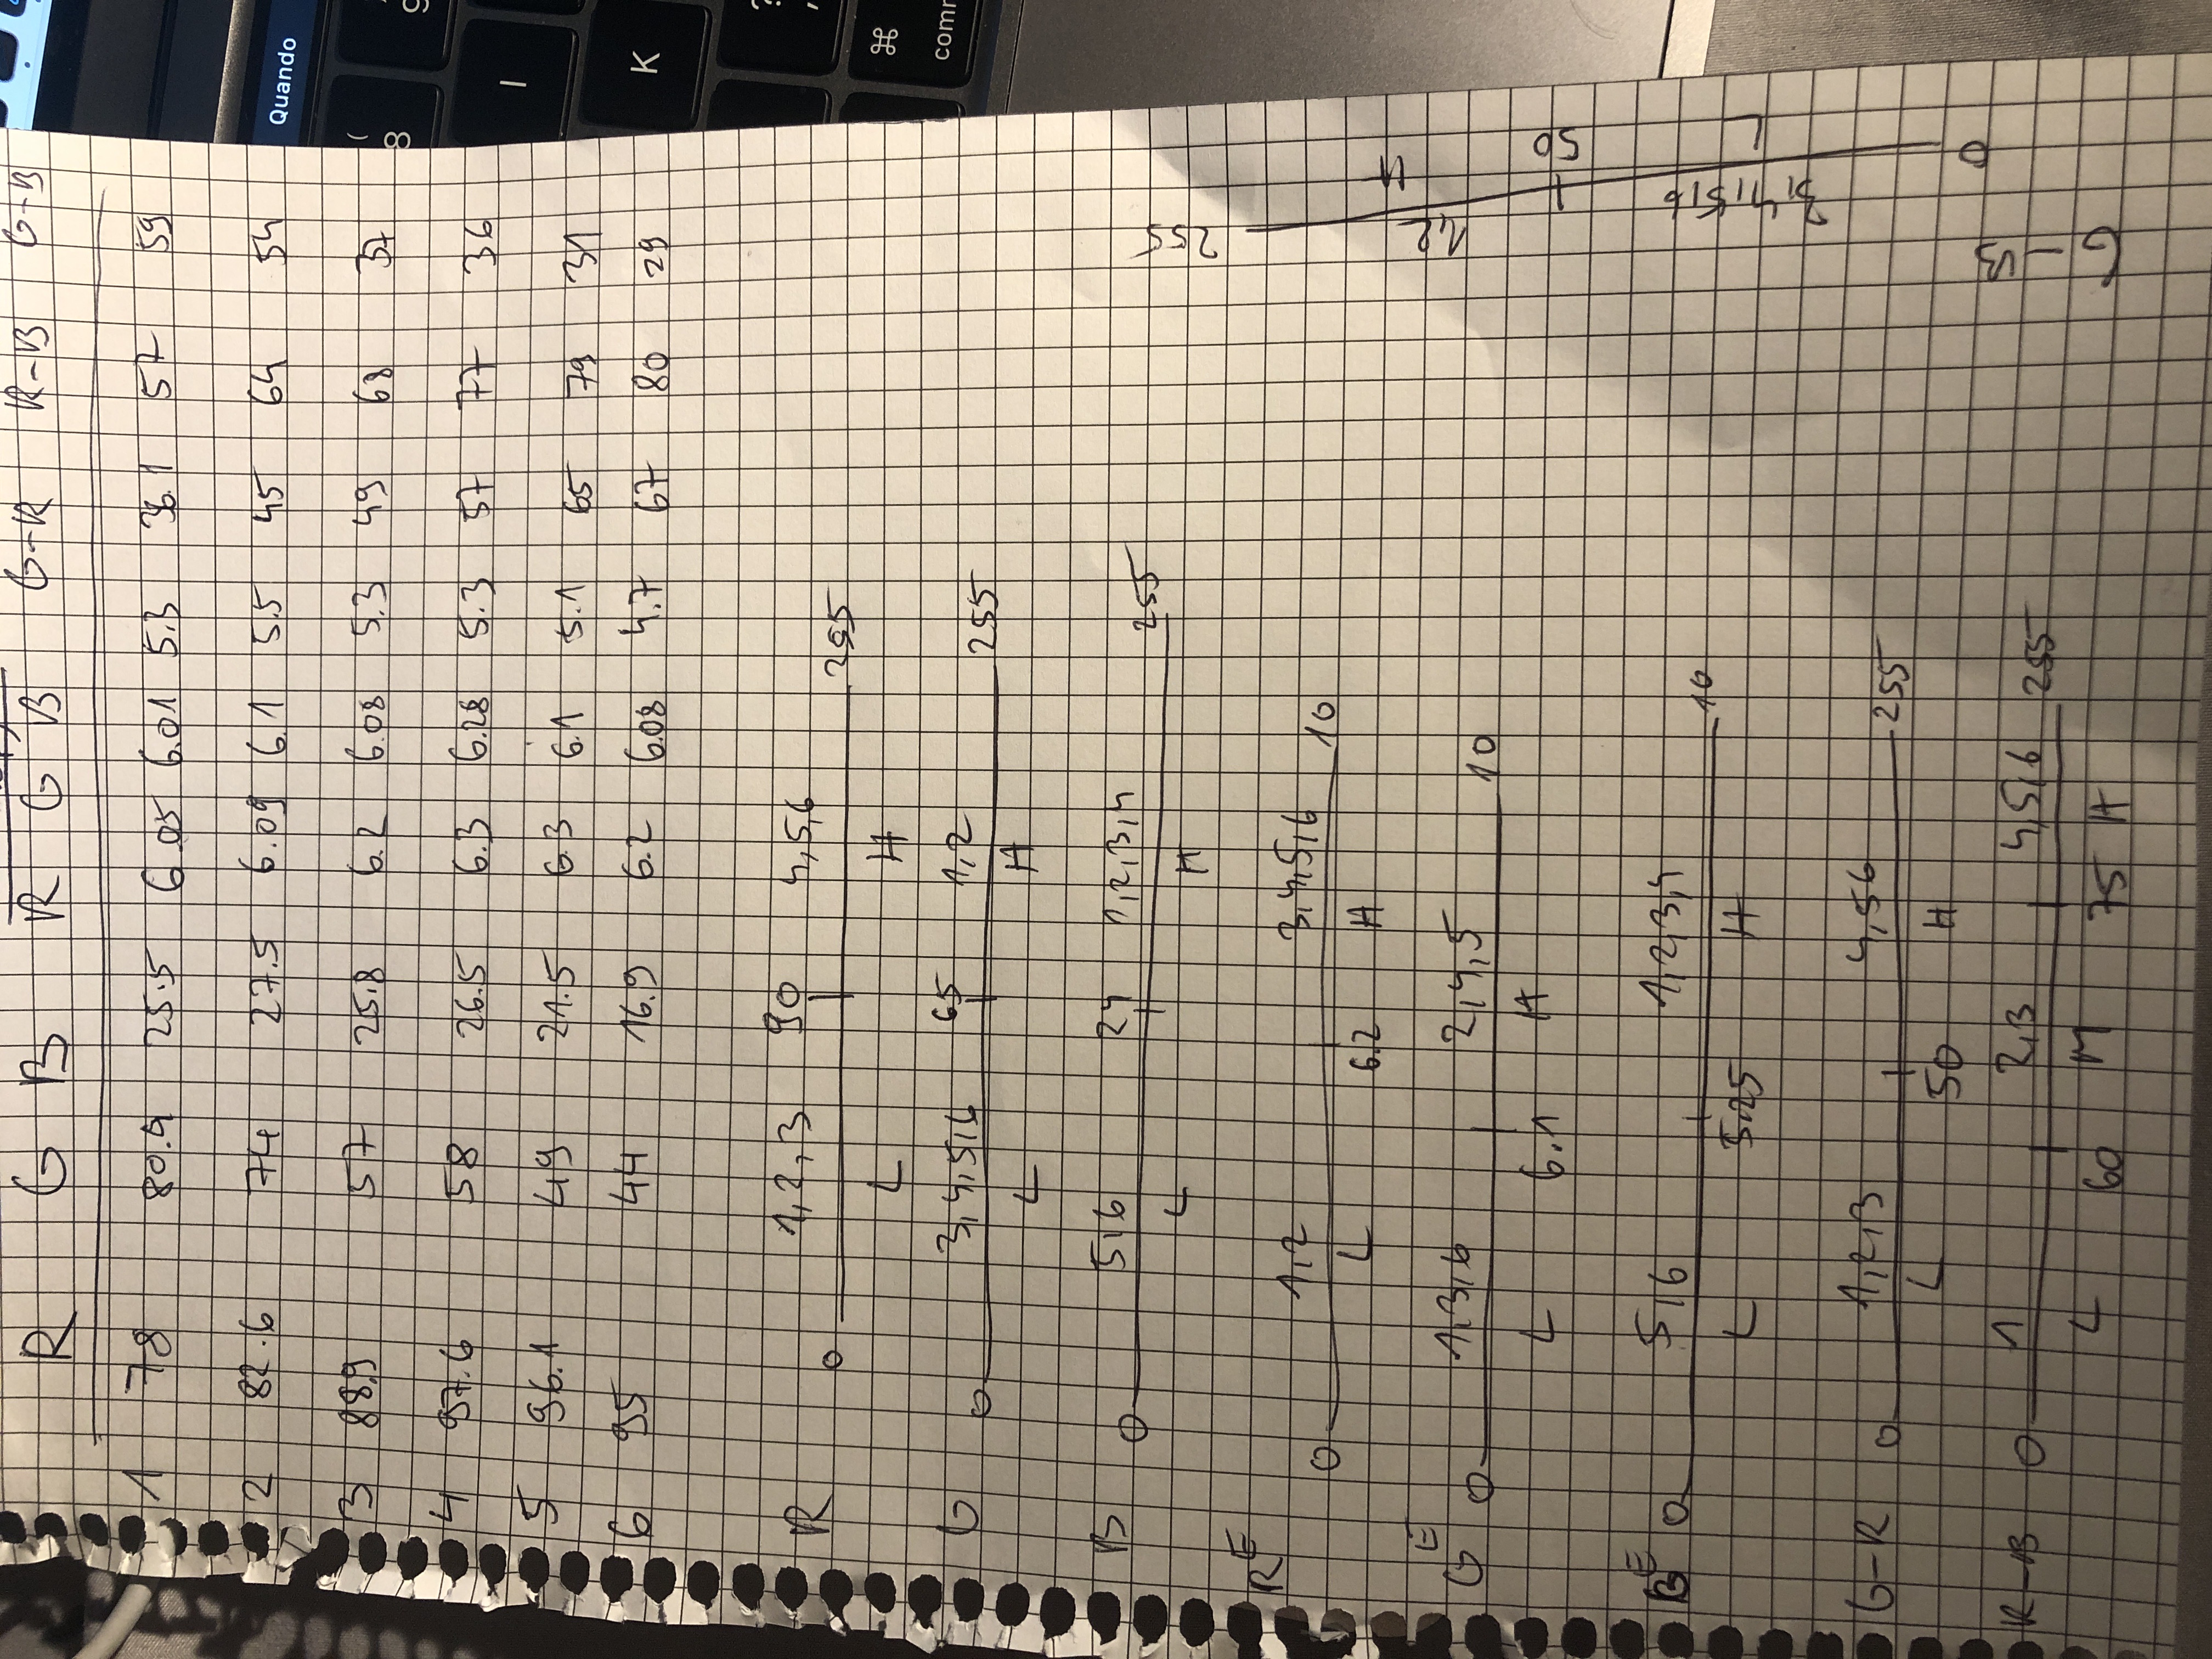 R G B R G B G-R R-B G-B
1 78 80.4 25.5 6.05 6.01 5.3 36.1 57 59
2 82.6 74 27.5 6.09 6.1 5.5 45 64 54
3 88.9 57 25.8 6.2 6.08 5.3 49 68 37
4 97.6 58 26.5 6.3 6.28 5.3 57 77 36
5 96.1 49 21.5 6.3 6.1 5.1 65 79 31
6 95 44 16.9 6.2 6.08 4.7 67 80 29
R 0 1,2,3 90 4,5,6 255
L H
G 0 3,4,5,6 65 1,2 255
L H
B 0 5,6 24 1,2,3,4 255
L H
R^E 0 1,2 3,4,5,6 10
L 6.2 H
G^E 0 1,3,6 2,4,5 10
L 6.1 H
B^E 0 5,6 1,2,3,4 10
L 5.25 H
G-R 0 1,2,3 4,56 255
L 50 H
R-B 0 1 2,3 4,5,6 255
L 60 M 75 H
G-B 0 3,4,5,6 1,2 255
L 50 H
Quando
( 8
9
I
K
?
,
⌘
comm